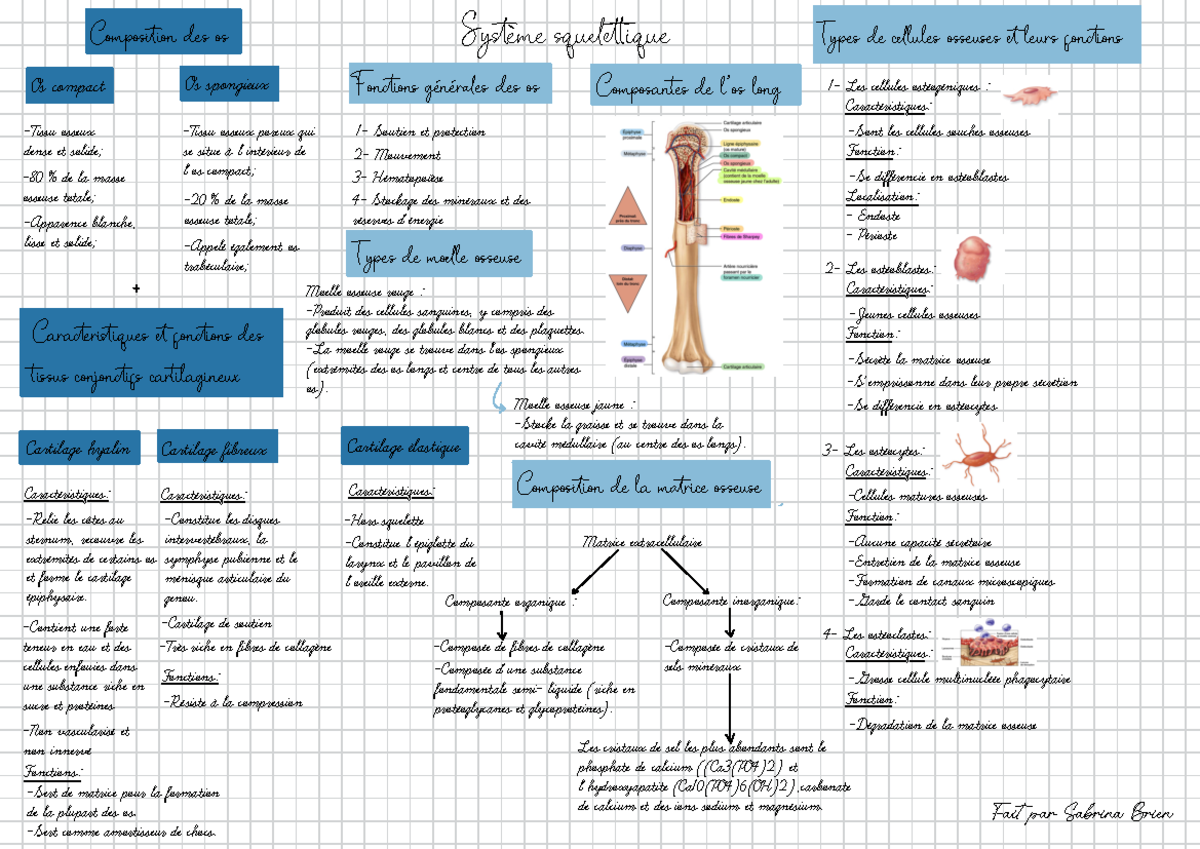 Système squelettique
Composition des os
Os compact
-Tissu osseux
dense et solide;
-80 % de la masse
osseuse totale;
-Apparence blanche,
lisse et solide;
Os spongieux
-Tissu osseux poreux qui
se situe à l'intérieur de
l'os compact;
-20 % de la masse
osseuse totale;
-Appelé également os
trabéculaire;
+
Caractéristiques et fonctions des
tissus conjonctifs cartilagineux
Cartilage hyalin
Caractéristiques:
-Relie les côtes au
sternum, recouvre les
extrémités de certains os
et forme le cartilage
épiphysaire.
-Contient une forte
teneur en eau et des
cellules enfouies dans
une substance riche en
sucre et protéines
-Non vascularisé et
non innervé
Fonctions:
-Sert de matrice pour la formation
de la plupart des os.
-Sert comme amortisseur de chocs.
Cartilage fibreux
Caractéristiques:
-Constitue les disques
intervertébraux, la
symphyse pubienne et le
ménisque articulaire du
genou.
-Cartilage de soutien
-Très riche en fibres de collagène
Fonctions:
-Résiste à la compression
Cartilage élastique
Caractéristiques:
-Hors squelette
-Constitue l'épiglotte du
larynx et le pavillon de
l'oreille externe.
Fonctions générales des os
1- Soutien et protection
2- Mouvement
3- Hématopoïèse
4- Stockage des minéraux et des
réserves d'énergie
Types de moelle osseuse
Moelle osseuse rouge :
-Produit des cellules sanguines, y compris des
globules rouges, des globules blancs et des plaquettes.
-La moelle rouge se trouve dans l'os spongieux
(extrémités des os longs et centre de tous les autres
os).
Moelle osseuse jaune :
-Stocke la graisse et se trouve dans la
cavité médullaire (au centre des os longs).
Composantes de l'os long
Épiphyse
proximale
Métaphyse
Proximal
près du tronc
Diaphyse
Distal
loin du tronc
Métaphyse
Épiphyse
distale
Cartilage articulaire
Os spongieux
Ligne épiphysaire
(os mature)
Os compact
Os spongieux
Cavité médullaire
(contient de la moelle
osseuse jaune chez l'adulte)
Endoste
Périoste
Fibres de Sharpey
Artère nourricière
passant par le
foramen nourricier
Cartilage articulaire
Composition de la matrice osseuse
Matrice extracellulaire
Composante organique :
-Composée de fibres de collagène
-Composée d'une substance
fondamentale semi- liquide (riche en
protéoglycanes et glycoprotéines).
Composante inorganique:
-Composée de cristaux de
sels minéraux
Les cristaux de sel les plus abondants sont le
phosphate de calcium ((Ca3(PO4)2) et
l'hydroxyapatite (Ca10(PO4)6(OH)2),carbonate
de calcium et des ions sodium et magnésium.
Types de cellules osseuses et leurs fonctions
1- Les cellules ostéogéniques :
Caractéristiques:
-Sont les cellules souches osseuses
Fonction:
-Se différencie en ostéoblastes
Localisation:
- Endoste
- Périoste
2- Les ostéoblastes:
Caractéristiques:
-Jeunes cellules osseuses
Fonction:
-Secrète la matrice osseuse
-S'emprisonne dans leur propre sécrétion
-Se différencie en ostéocytes
3- Les ostéocytes:
Caractéristiques:
-Cellules matures osseuses
Fonction:
-Aucune capacité sécrétoire
-Entretien de la matrice osseuse
-Formation de canaux microscopiques
-Garde le contact sanguin
4- Les ostéoclastes:
Caractéristiques:
-Grosse cellule multinucléée phagocytaire
Fonction:
-Dégradation de la matrice osseuse
Fait par Sabrina Brien